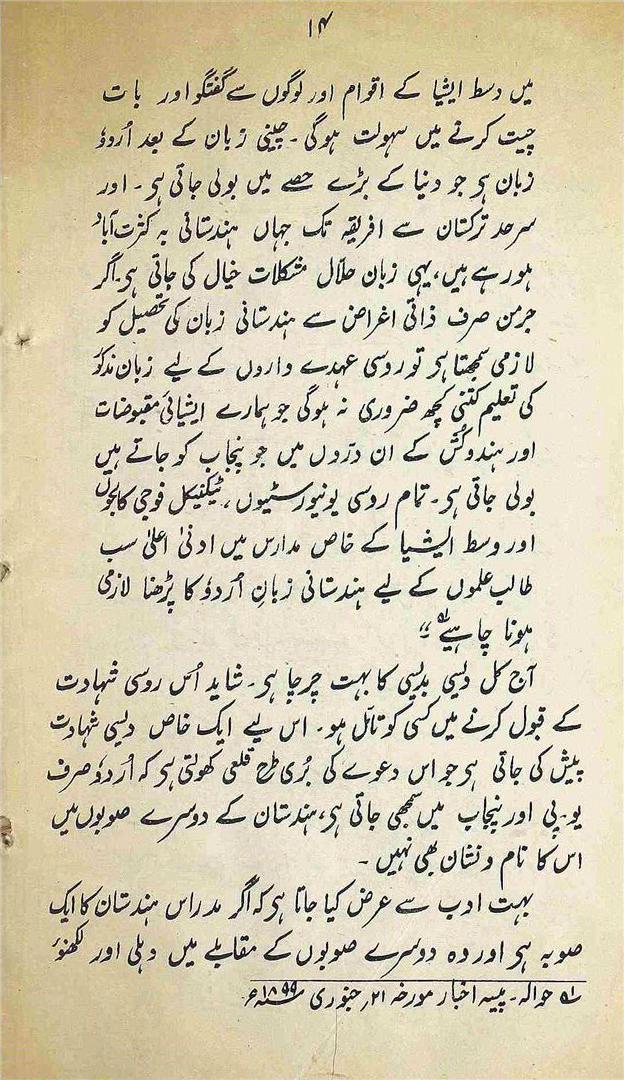 ۱۴
میں وسط ایشیا کے اقوام اور لوگوں سے گفتگو اور بات
چیت کرنے میں سہولت ہوگی۔ چینی زبان کے بعد اُردؤ
زبان ہی جو دنیا کے بڑے حصے میں بولی جاتی ہی۔ اور
سرحد ترکستان سے افریقہ تک جہاں ہندستانی بہ کثرت آباد
ہورہے ہیں، یہی زبان حلّال مشکلات خیال کی جاتی ہی۔ اگر
جرمن صرف ذاتی اغراض سے ہندستانی زبان کی تحصیل کو
لازمی سمجھتا ہی تو روسی عہدے داروں کے لیے زبان مذکور
کی تعلیم کتنی کچھ ضروری نہ ہوگی جو ہمارے ایشیائی مقبوضات
اور ہندوکُش کے ان درّوں میں جو پنجاب کو جاتے ہیں
بولی جاتی ہی۔ تمام روسی یونیورسٹیوں، ٹیکنیکل فوجی کالجوں
اور وسط ایشیا کے خاص مدارس میں ادنیٰ اعلیٰ سب
طالب علموں کے لیے ہندستانی زبانِ اُردؤ کا پڑھنا لازمی
ہونا چاہیے لہ"
آج کل دیسی بدیسی کا بہت چرچا ہی۔ شاید اُس روسی شہادت
کے قبول کرنے میں کسی کو تامّل ہو۔ اس لیے ایک خاص دیسی شہادت
پیش کی جاتی ہی جو اس دعوے کی بُری طرح قلعی کھولتی ہی کہ اُردؤ صرف
یو۔پی اور پنجاب میں سمجھی جاتی ہی، ہندستان کے دوسرے صوبوں میں
اس کا نام و نشان بھی نہیں۔
بہت ادب سے عرض کیا جاتا ہی کہ اگر مدراس ہندستان کا ایک
صوبہ ہی اور وہ دوسرے صوبوں کے مقابلے میں دہلی اور لکھنؤ
لہ حوالہ۔ پیسہ اخبار مورخہ ۲۱؍ جنوری ۱۸۹۹ء